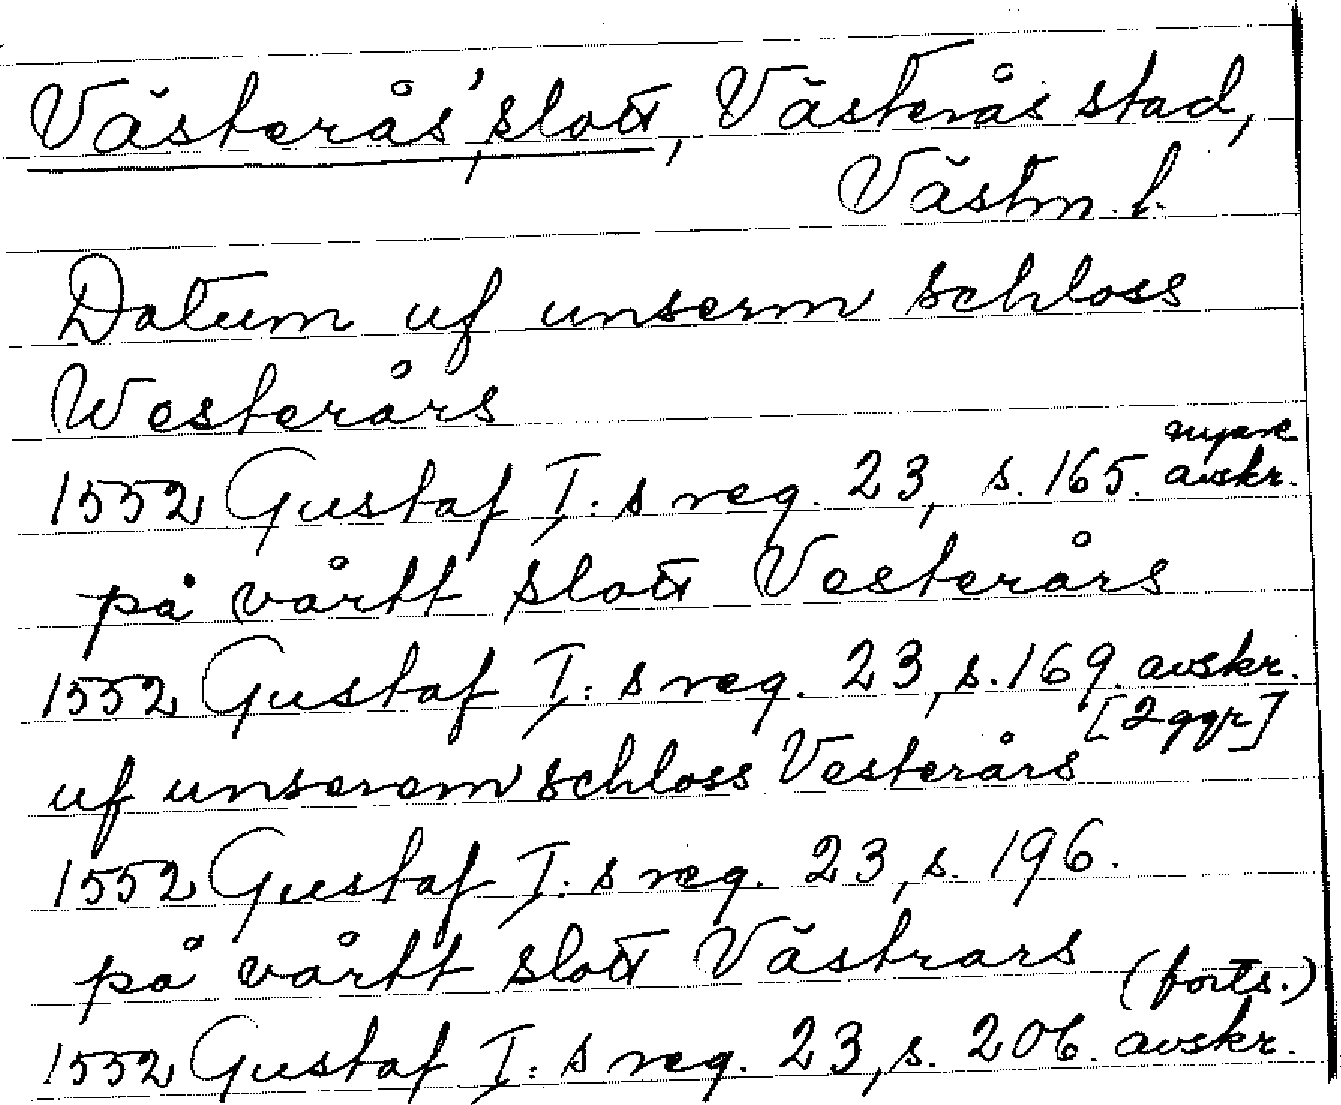 Västerås, slott, Västerås stad,
Västm. l.
Datum uf unserm schloss
Westerårs
1552 Gustaf I:s reg. 23, s. 165. nyare avskr.
på vårtt slott Vesterårs
1552 Gustaf I:s reg. 23, s. 169. avskr.
[2 ggr]
uf unserem schloss Vesterårs
1552 Gustaf I:s reg. 23, s. 196.
på vårtt slott Västrars
(forts.)
1552 Gustaf I:s reg. 23, s. 206. avskr.